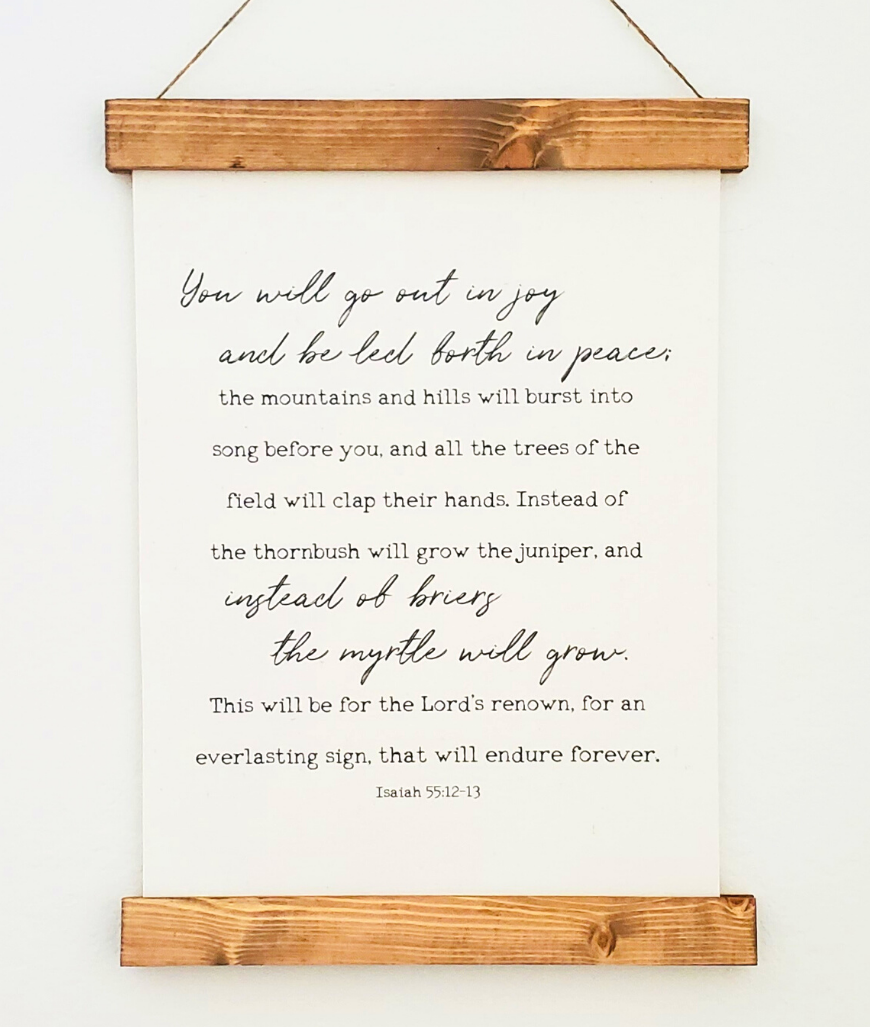 You will go out in joy
and be led forth in peace;
the mountains and hills will burst into
song before you, and all the trees of the
field will clap their hands. Instead of
the thornbush will grow the juniper, and
instead of briers
the myrtle will grow.
This will be for the Lord's renown, for an
everlasting sign, that will endure forever.
Isaiah 55:12-13